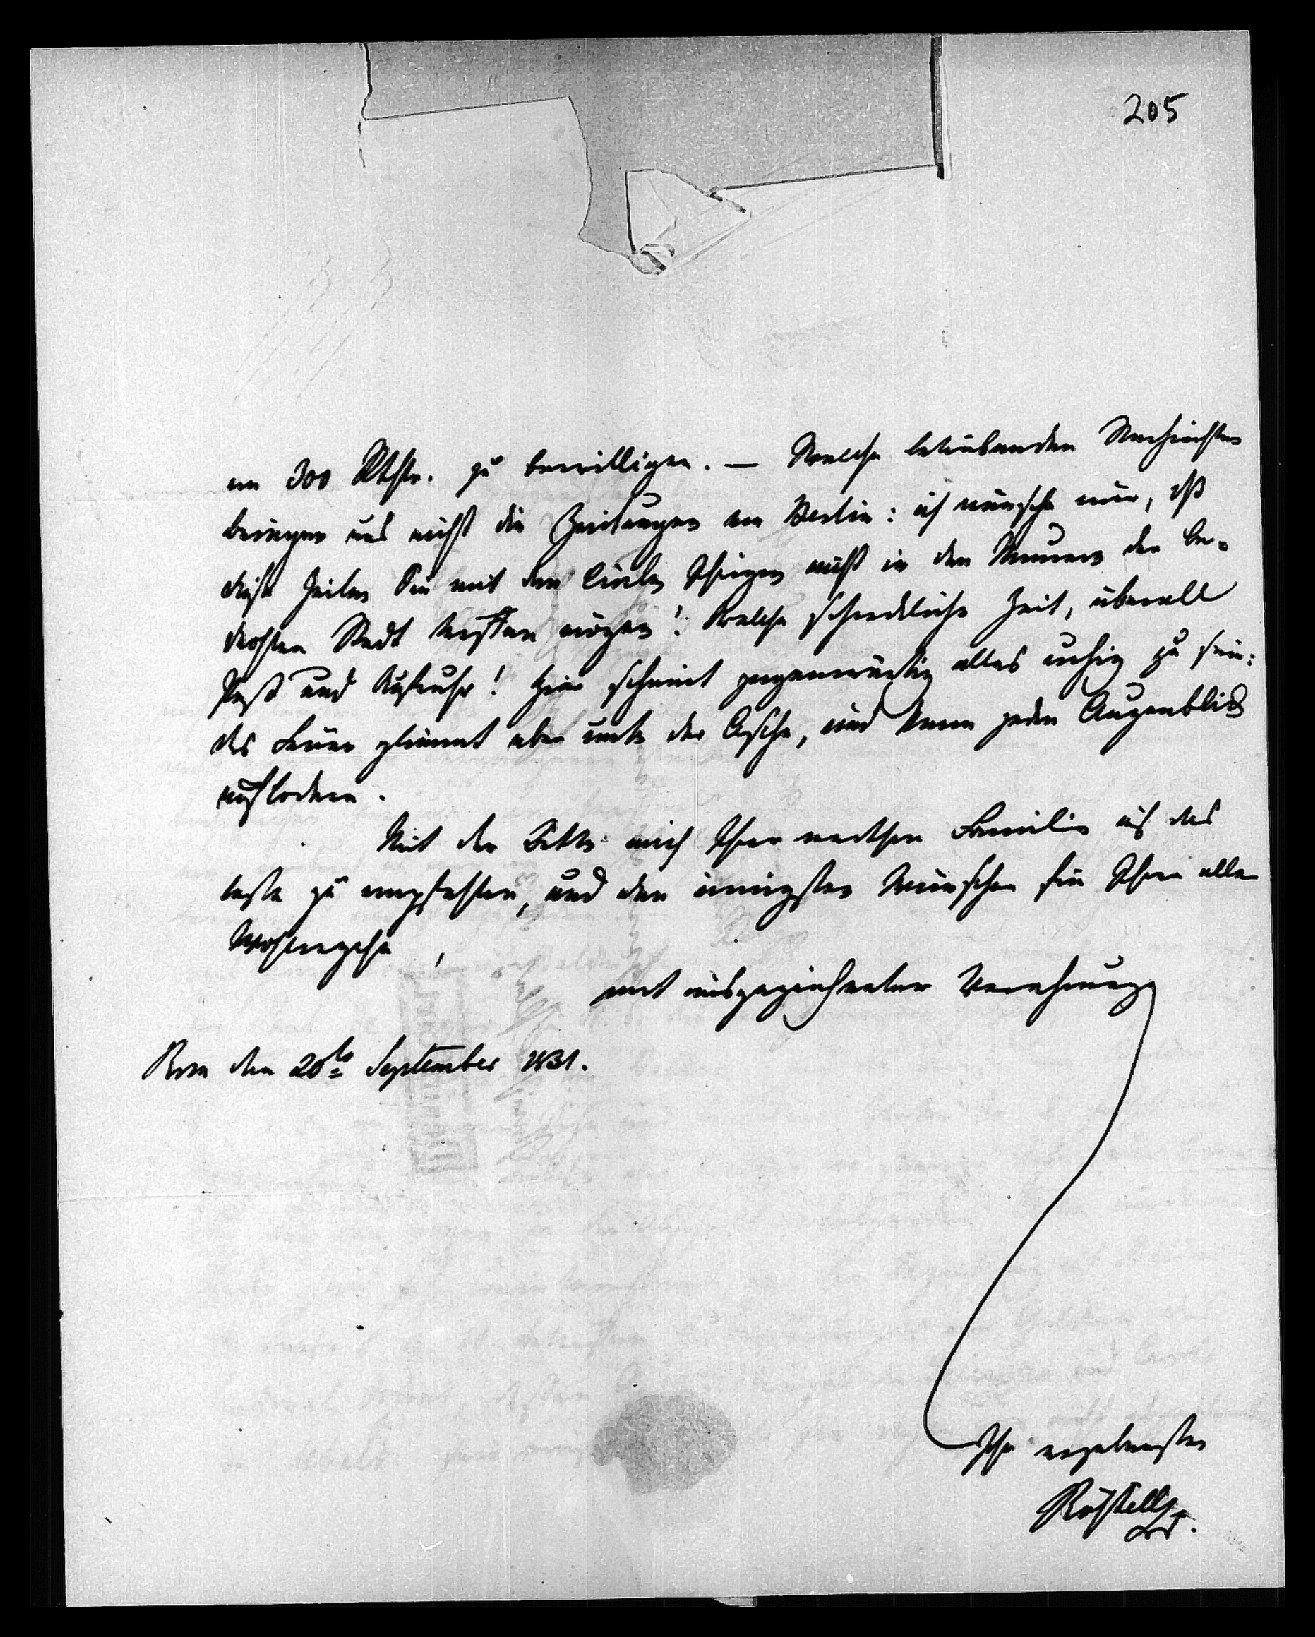 205
von 300 Rthlr. zu bewilligen. — Welche betrübenden Nachrichten
bringen uns nicht die Zeitungen von Berlin: ich wünsche nur, dß
diese Zeilen Sie mit den lieben Ihrigen nicht in den Mauern der be-
drohten Stadt treffen mögen! Welche schreckliche Zeit, überall
Pest und Aufruhr! Hier scheint gegenwärtig alles ruhig zu sein:
das Feuer glimmt aber unter der Asche, und kann jeden Augenblick
auflodern.
Mit der Bitte mich Ihrer werthen Familie auf das
beste zu empfehlen, und den innigsten Wünschen für Ihrer aller
Wohlergehn,
mit ausgezeichneter Verehrung
Rom den 20ten September 1831.
Ihr ergebenster
Röstell